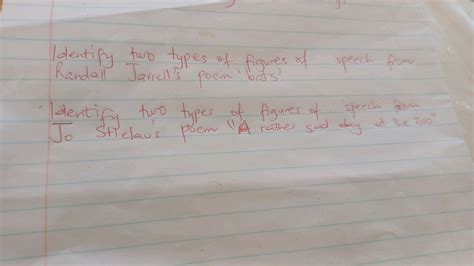 Identify two types of figures of speech from
Randall Jarrell's poem 'bats'
Identify two types of figures of speech from
Jo Strelaw's poem "A rather sad day at the zoo"